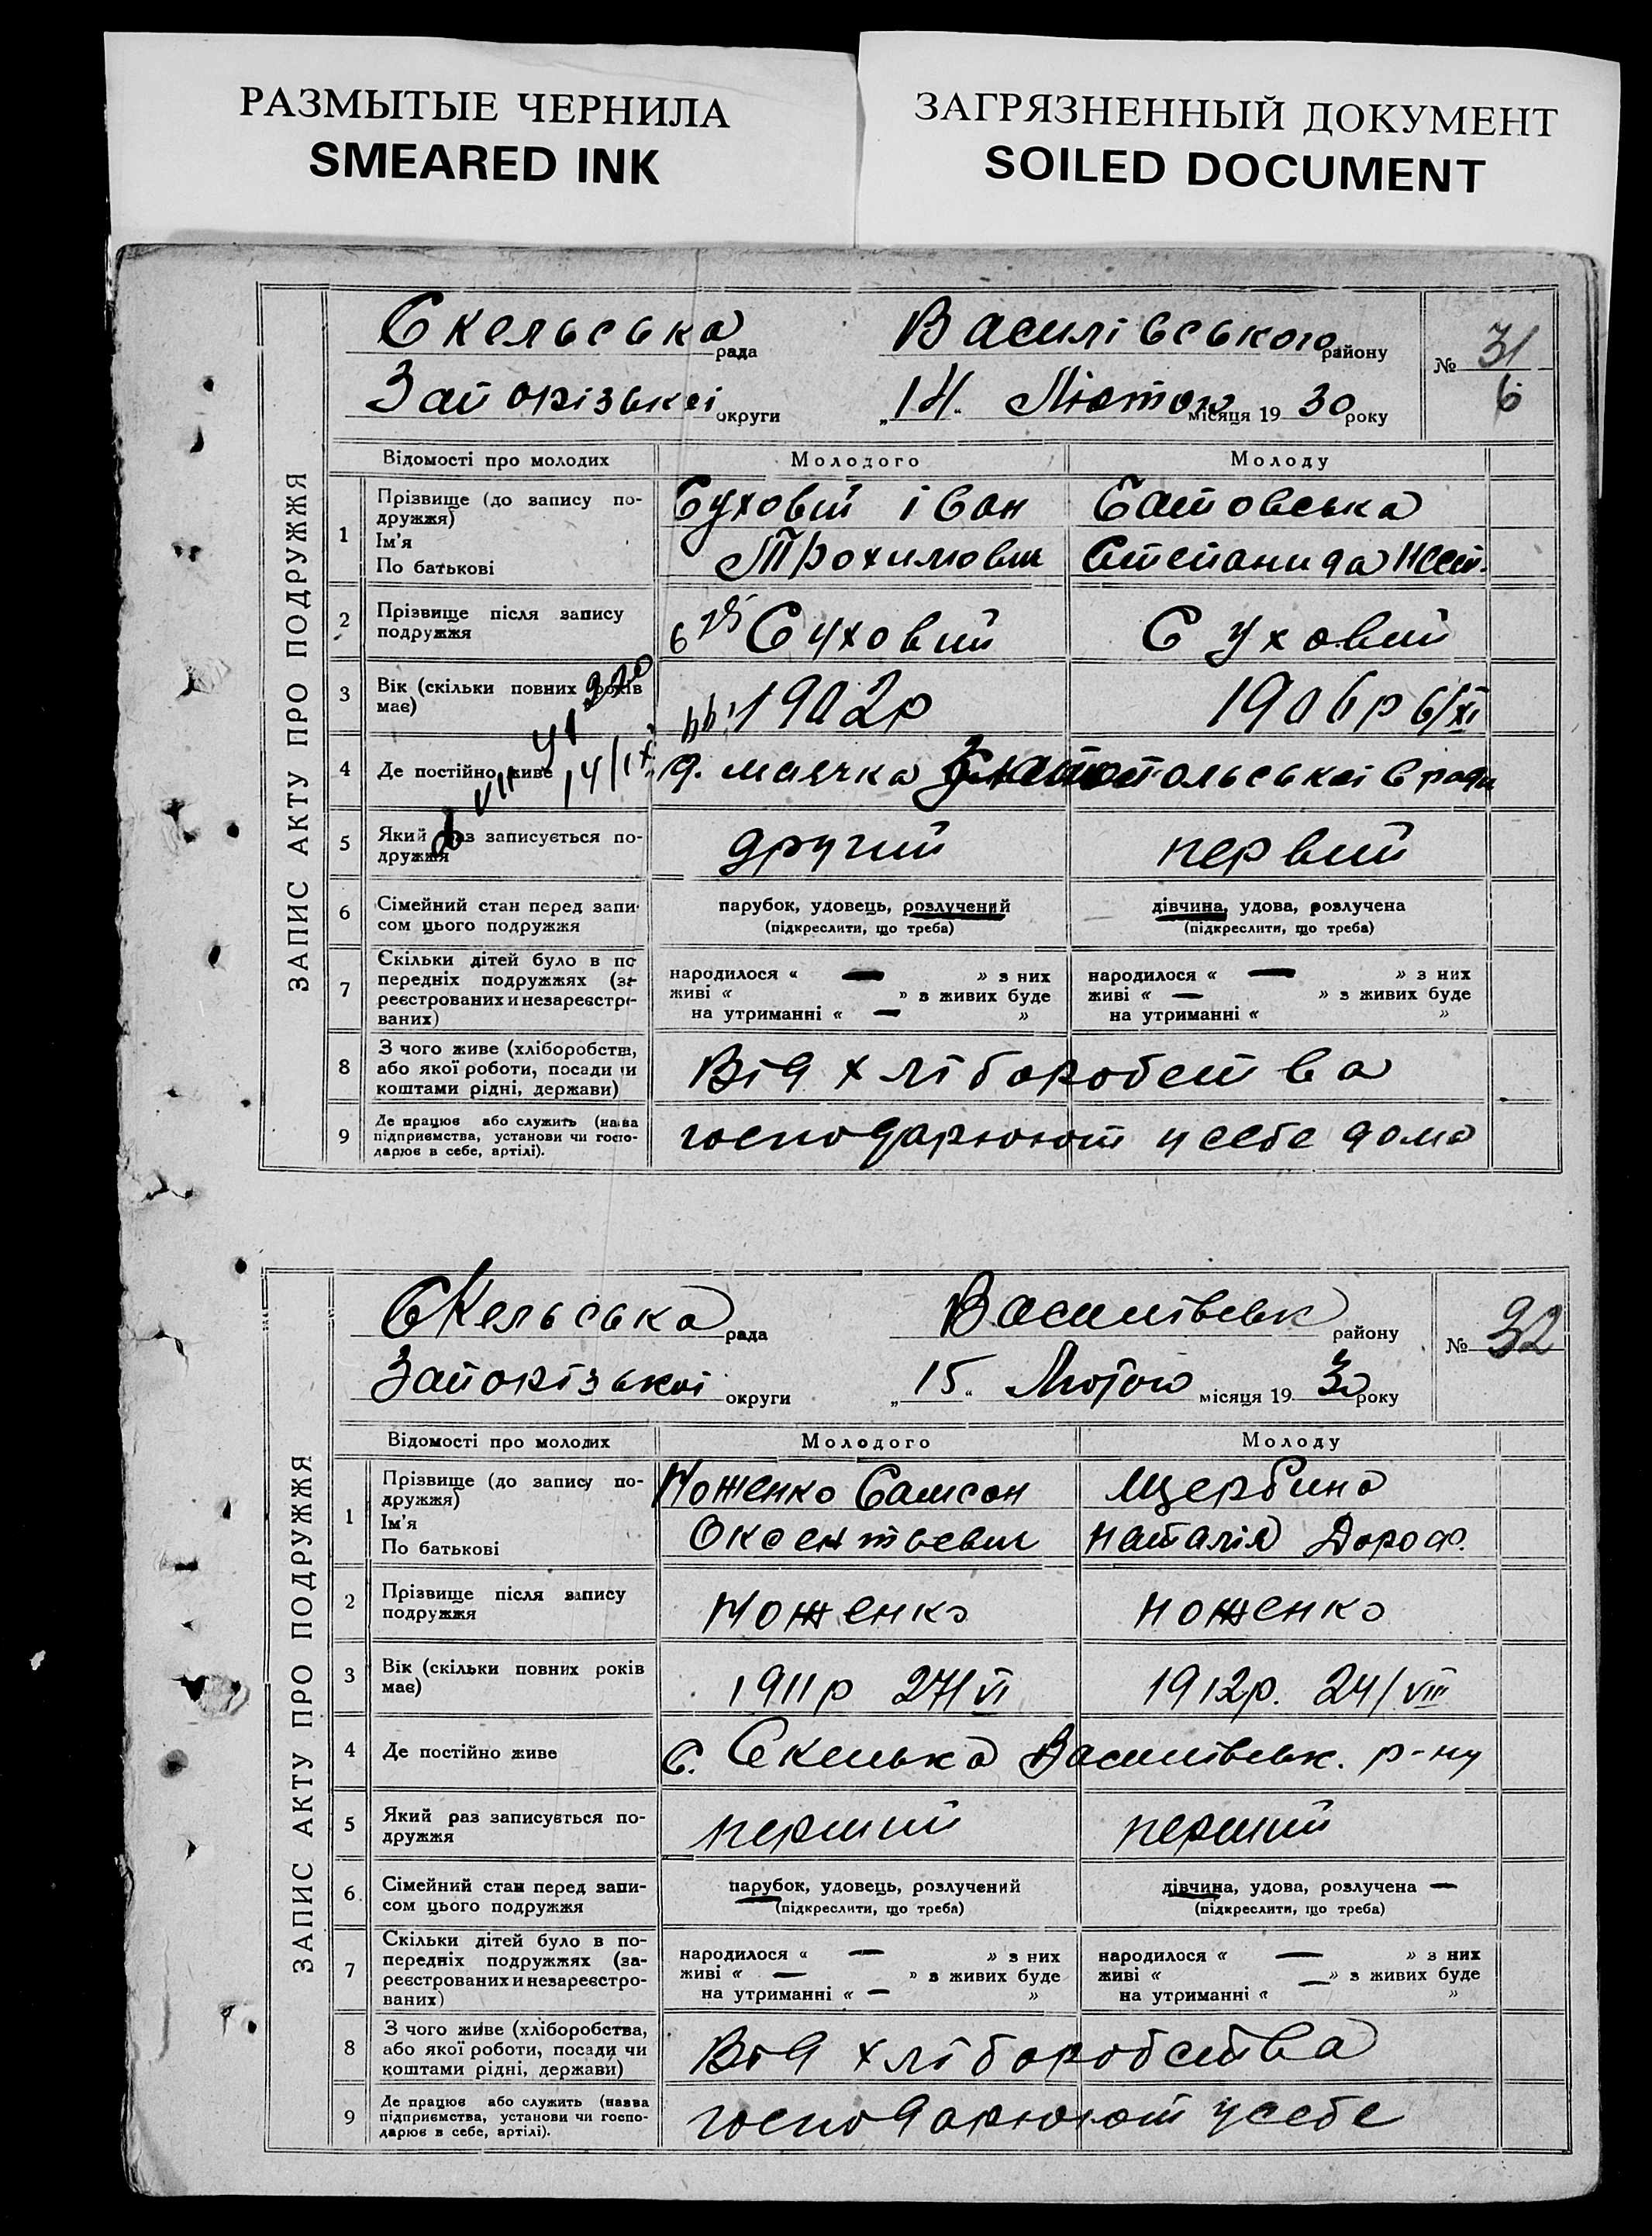 РАЗМЫТЫЕ ЧЕРНИЛА
SMEARED INK
ЗАГРЯЗНЕННЫЙ ДОКУМЕНТ
SOILED DOCUMENT
ЗАПИС АКТУ ПРО ПОДРУЖЖЯ
Скельська рада Василівського району № 31
6
Запорізької округи „14“ Лютого місяця 1930 року
Відомості про молодих Молодого Молоду
1 Прізвище (до запису по-
дружжя)
Ім'я
По батькові
Суховій Іван
Трохимович
Сатовська
Степанида Нест.
2 Прізвище після запису
подружжя
Суховий Суховий
3 Вік (скільки повних років
має)
1902р 1906р 6/XI
4 Де постійно живе 14/IX
маячка польської с ради
5 Який раз записується по-
дружжя
другий первий
6 Сімейний стан перед запи-
сом цього подружжя
парубок, удовець, розлучений
(підкреслити, що треба)
дівчина, удова, розлучена
(підкреслити, що треба)
7 Скільки дітей було в по-
передніх подружжях (за-
реєстрованих и незареєстро-
ваних)
народилося « — » з них
живі « » в живих буде
на утриманні « — »
народилося « — » з них
живі « — » з живих буде
на утриманні « »
8 З чого живе (хліборобства,
або якої роботи, посади чи
коштами рідні, держави)
Від хліборобства
9 Де працює або служить (назва
підприємства, установи чи госпо-
дарює в себе, артілі).
господарюют у себе дома
ЗАПИС АКТУ ПРО ПОДРУЖЖЯ
Скельська рада Василівськ району № 32
Запорізької округи „15“ Лютого місяця 1930 року
Відомості про молодих Молодого Молоду
1 Прізвище (до запису по-
дружжя)
Ім'я
По батькові
Ноженко Самсон
Оксентьевич
Щербина
Наталія Дороф.
2 Прізвище після запису
подружжя
Ноженко Ноженко
3 Вік (скільки повних років
має)
1911р 27/VI 1912р. 24/VIII
4 Де постійно живе
с. Скелька Василівськ. р-ну
5 Який раз записується по-
дружжя
перший перший
6 Сімейний стан перед запи-
сом цього подружжя
парубок, удовець, розлучений
(підкреслити, що треба)
дівчина, удова, розлучена —
(підкреслити, що треба)
7 Скільки дітей було в по-
передніх подружжях (за-
реєстрованих и незареєстро-
ваних)
народилося « — » з них
живі « — » в живих буде
на утриманні « — »
народилося « — » з них
живі « — » в живих буде
на утриманні « »
8 З чого живе (хліборобства,
або якої роботи, посади чи
коштами рідні, держави)
Від хліборобства
9 Де працює або служить (назва
підприємства, установи чи госпо-
дарює в себе, артілі).
господарюют у себе